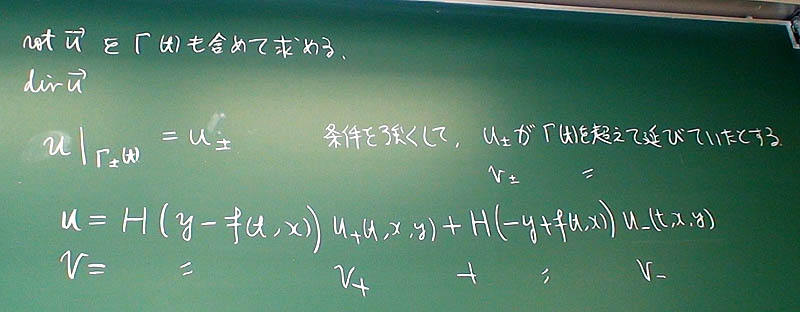 rot u⃗ を Γ(t) も含めて求める.
div u⃗
u|Γ±(t) = u±
条件を強くして, u± が Γ(t)を超えて延びていたとする.
v± =
u = H(y-f(t,x)) u+(t,x,y) + H(-y+f(t,x)) u-(t,x,y)
v = 〃 v+ + 〃 v-